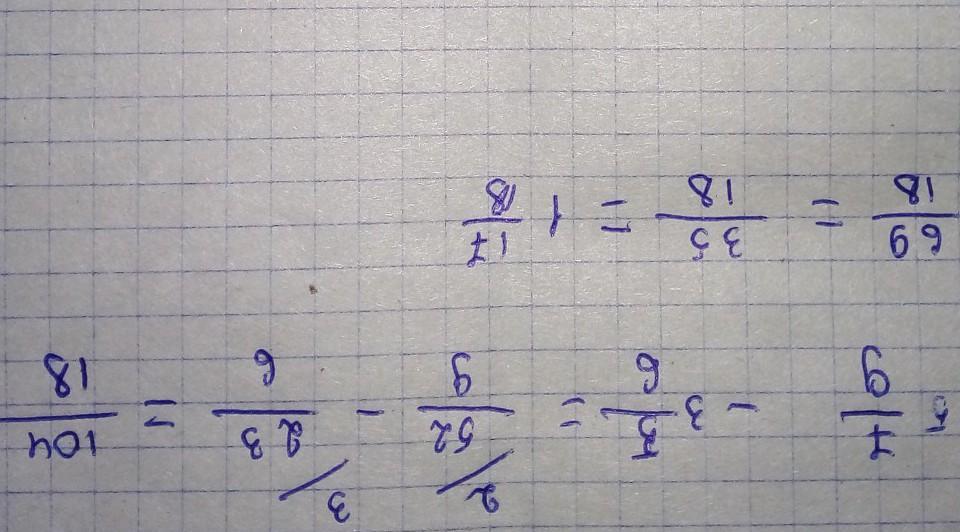 5 7/9 - 3 5/6 = 2/ 52/9 - 3/ 23/6 = 104/18
69/18 = 35/18 = 1 17/18